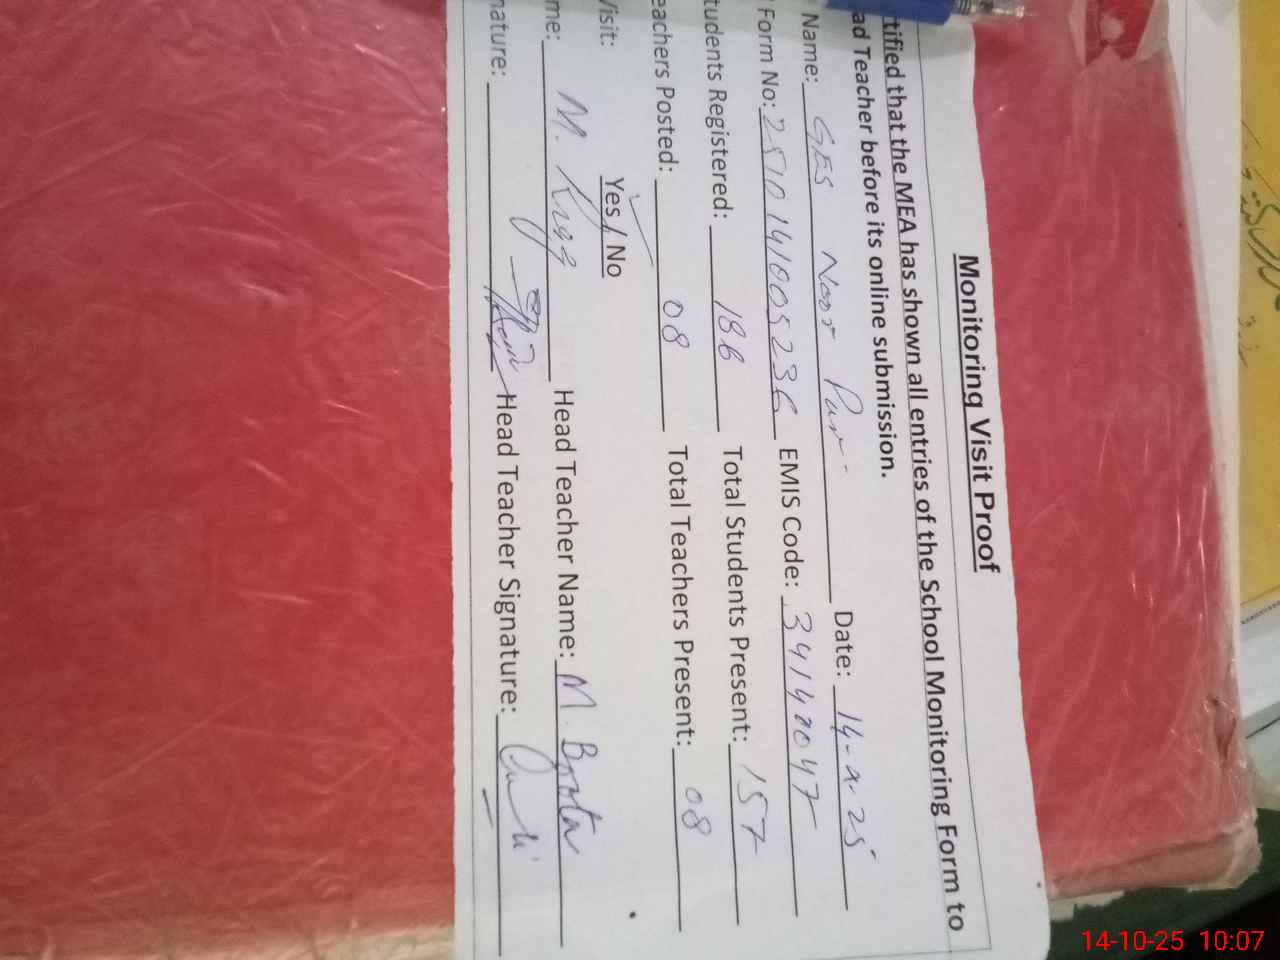 Monitoring Visit Proof
rtified that the MEA has shown all entries of the School Monitoring Form to
ad Teacher before its online submission.
Name: GES Noor Pur Date: 14-x-25
Form No: 2510141005236 EMIS Code: 34140047
tudents Registered: 186 Total Students Present: 157
eachers Posted: 08 Total Teachers Present: 08
Visit: Yes / No
me: M. Head Teacher Name: M. Boota
nature: Head Teacher Signature:
14-10-25 10:07